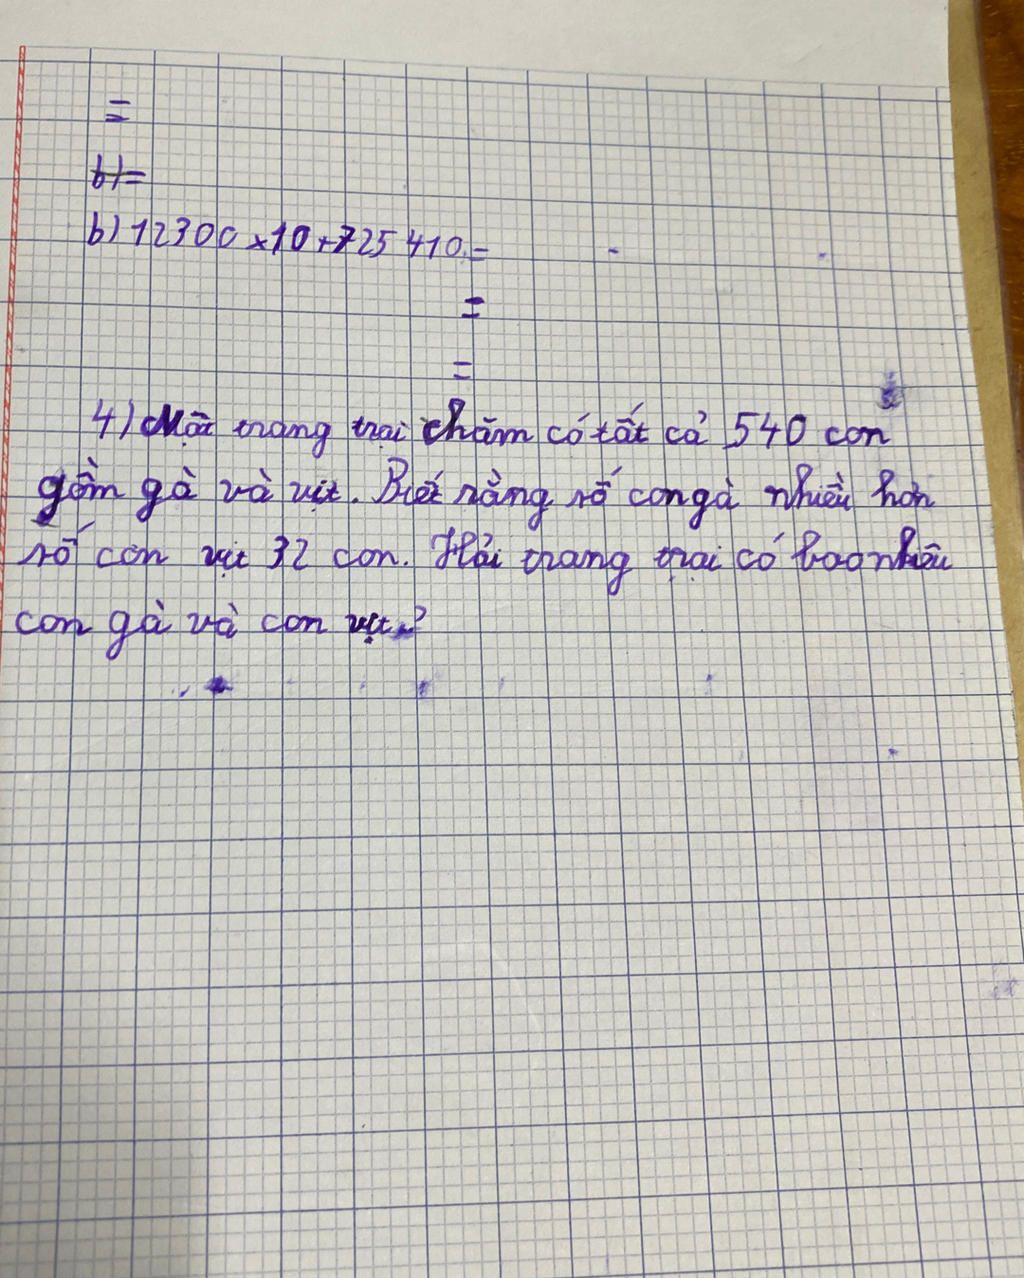 =
b)=
b) 12300 × 10 + 725 410 =
=
=
4) Một trang trại chăm có tất cả 540 con
gồm gà và vịt. Biết rằng số con gà nhiều hơn
số con vịt 32 con. Hỏi trang trại có bao nhiêu
con gà và con vịt?